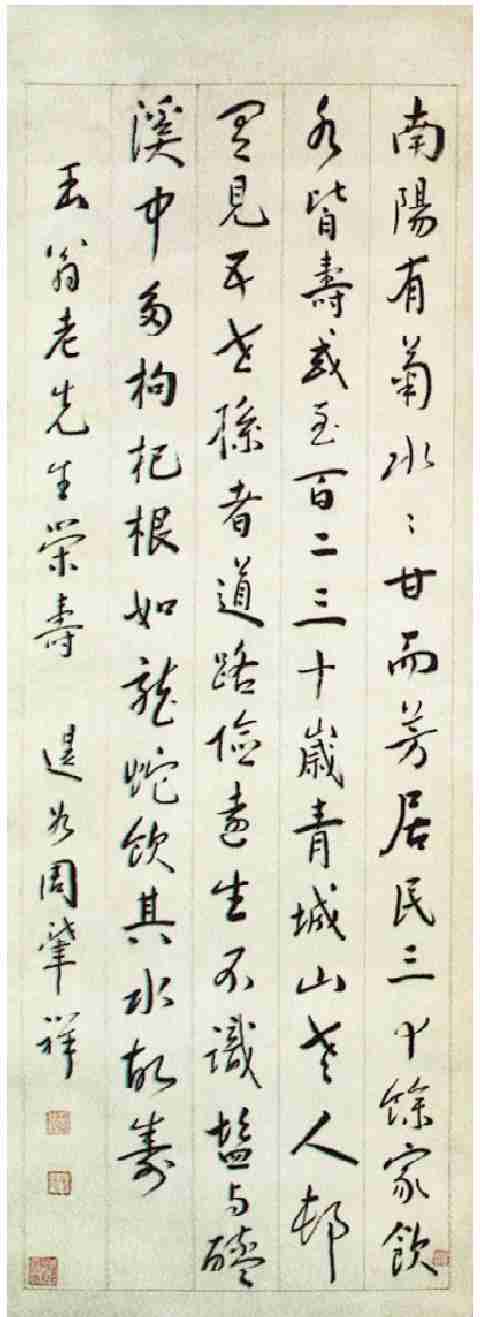 南陽有菊水〻甘而芳居民三十餘家飲
水皆壽或至百二三十歲青城山老人邨
有見五世孫者道路險遠生不識鹽與醯
溪中多枸杞根如龍蛇飲其水故壽
翁老先生榮壽 退翁周肇祥